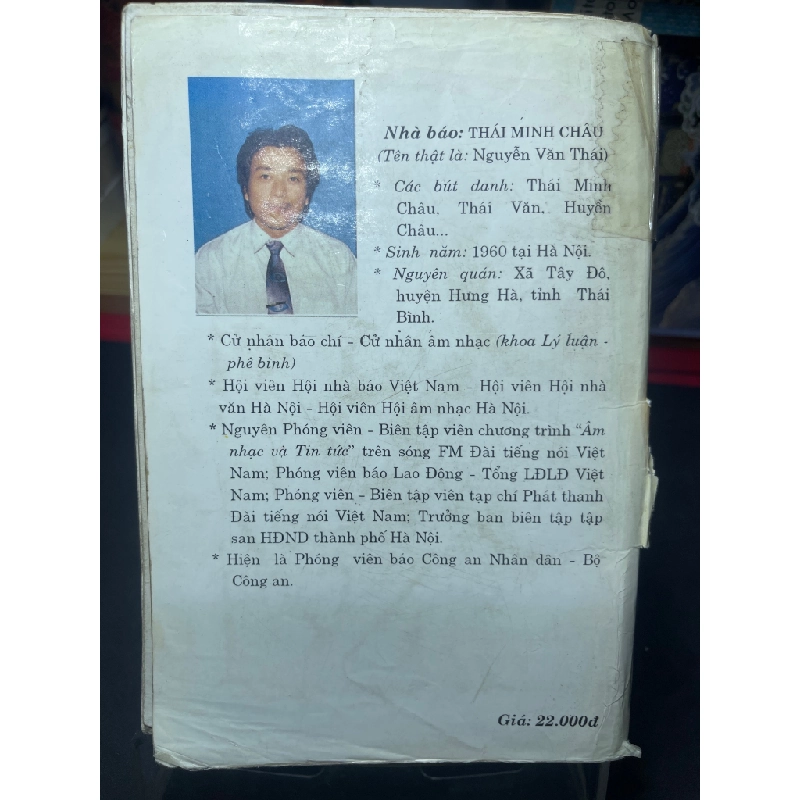 Nhà báo: THÁI MINH CHÂU
(Tên thật là: Nguyễn Văn Thái)
* Các bút danh: Thái Minh
Châu, Thái Văn, Huyền
Châu...
* Sinh năm: 1960 tại Hà Nội.
* Nguyên quán: Xã Tây Đô,
huyện Hưng Hà, tỉnh Thái
Bình.
* Cử nhân báo chí - Cử nhân âm nhạc (khoa Lý luận -
phê bình)
* Hội viên Hội nhà báo Việt Nam - Hội viên Hội nhà
văn Hà Nội - Hội viên Hội âm nhạc Hà Nội.
* Nguyên Phóng viên - Biên tập viên chương trình "Âm
nhạc và Tin tức" trên sóng FM Đài tiếng nói Việt
Nam; Phóng viên báo Lao Động - Tổng LĐLĐ Việt
Nam; Phóng viên - Biên tập viên tạp chí Phát thanh
Đài tiếng nói Việt Nam; Trưởng ban biên tập tập
san HĐND thành phố Hà Nội.
* Hiện là Phóng viên báo Công an Nhân dân - Bộ
Công an.
Giá: 22.000đ